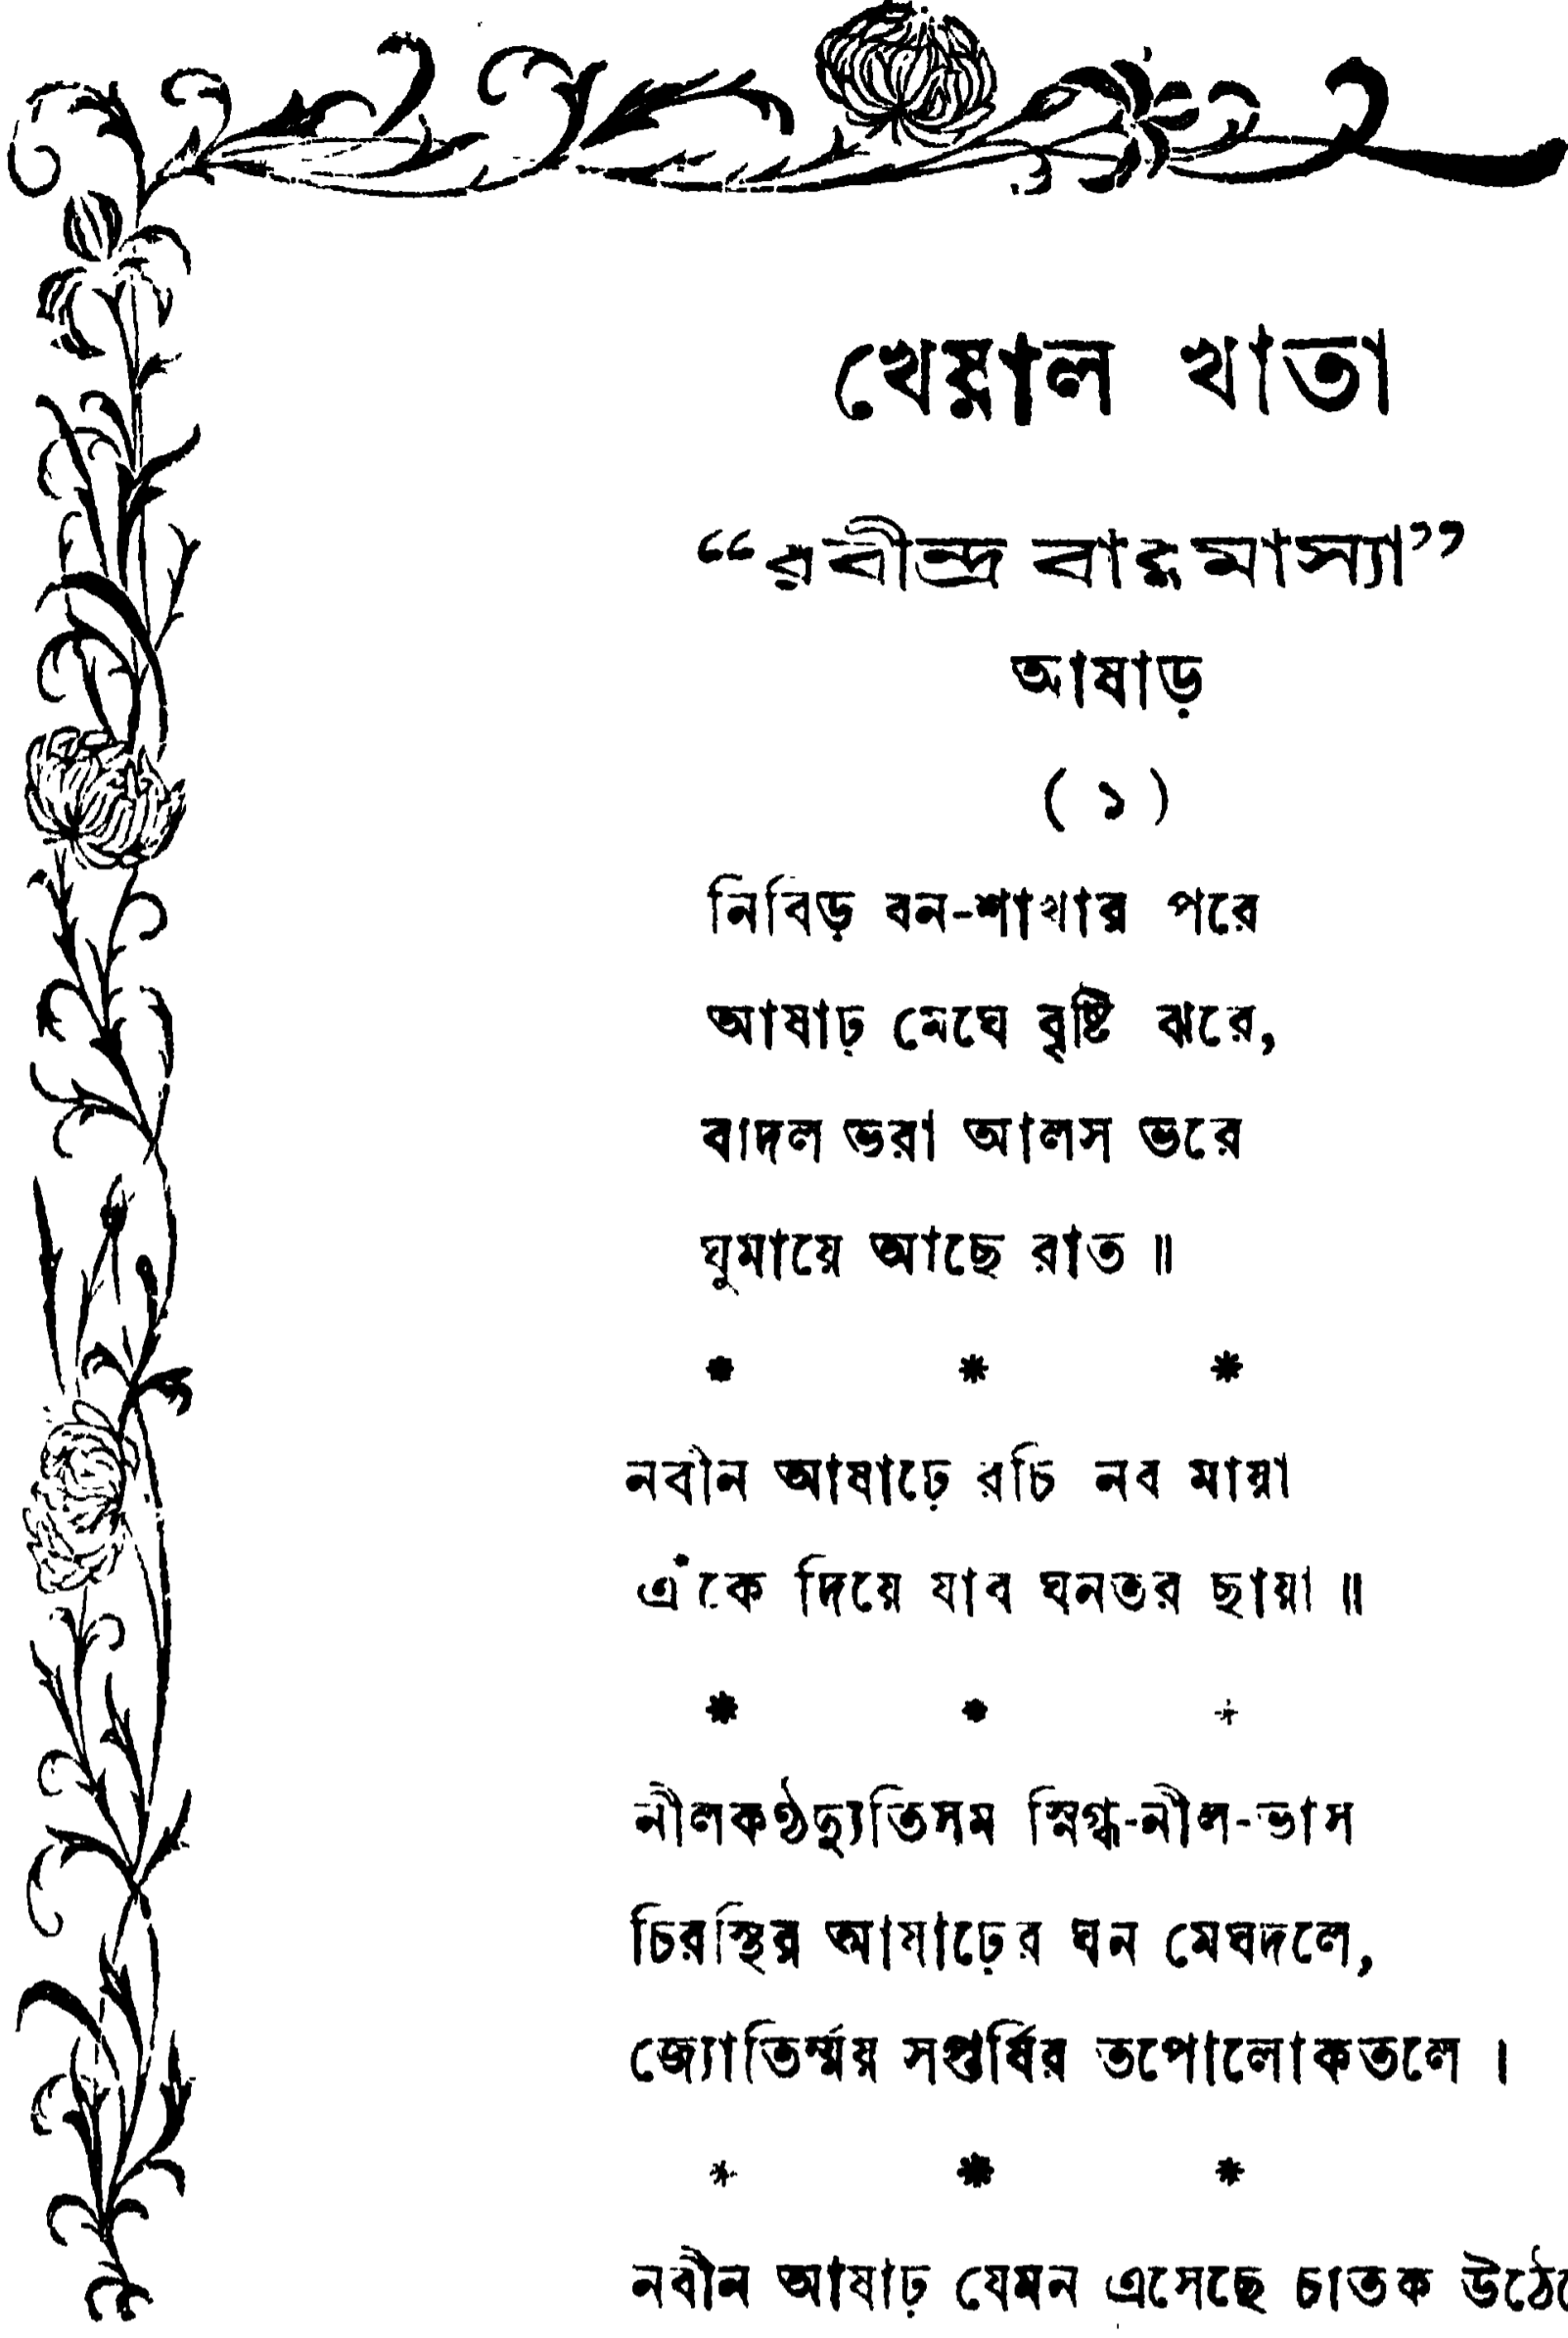 খেয়াল খাতা
“রবীন্দ্র বারমাস্যা”
আষাড়
( ১ )
নিবিড় বন-শাখার পরে
আষাঢ় মেঘে বৃষ্টি ঝরে,
বাদল ভরা আলস ভরে
ঘুমায়ে আছে রাত ॥
* * *
নবীন আষাঢ়ে রচি নব মায়া
এঁকে দিয়ে যাব ঘনতর ছায়া ॥
* * *
নীলকণ্ঠদ্যুতিসম স্নিগ্ধ-নীল-ভাস
চিরস্থির আষাঢ়ের ঘন মেঘদলে,
জ্যোতির্ম্ময় সপ্তর্ষির তপোলোকতলে ।
* * *
নবীন আষাঢ় যেমন এসেছে চাতক